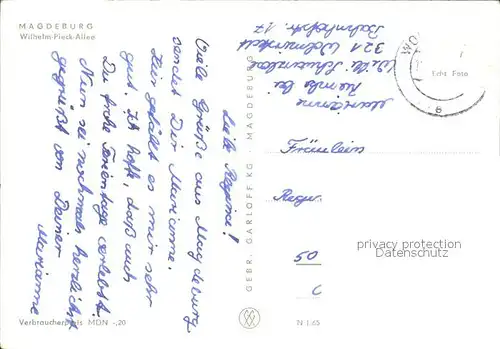 MAGDEBURG
Wilhelm-Pieck-Allee
Liebe Regina!
Viele Grüße aus Magdeburg
sendet Dir Marianne.
Hier gefällt es mir sehr
gut. Ich hoffe, daß auch
Du frohe Ferientage verlebst.
Nun sei nochmals herzlichst
gegrüßt von Deiner
Marianne
Verbraucherpreis MDN -,20
GEBR. GARLOFF KG. MAGDEBURG
N 1/65
Marianne
bei
Willi
321 Wolmirstedt
Bahnhofstr. 17
WO
Echt Foto
Fräulein
50
privacy protection
Datenschutz